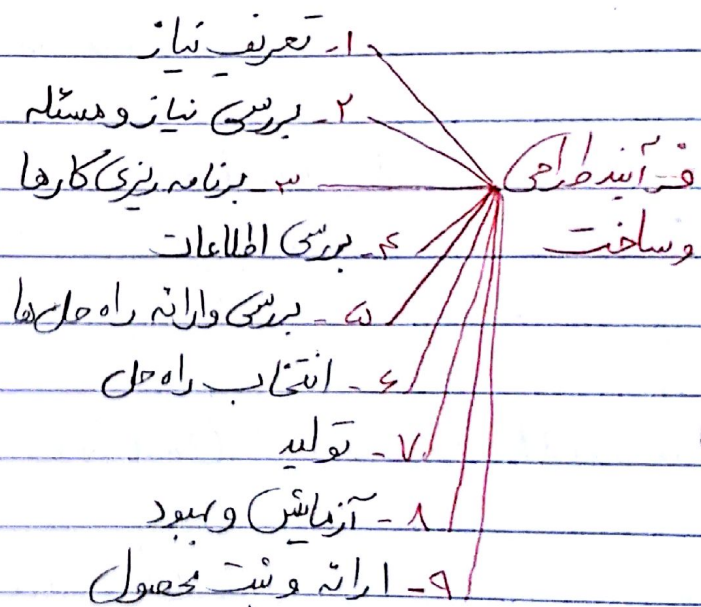 فرآیند طراحی
و ساخت
۱- تعریف نیاز
۲- بررسی نیاز و مسئله
۳- برنامه ریزی کارها
۴- بررسی اطلاعات
۵- بررسی و ارائه راه حل ها
۶- انتخاب راه حل
۷- تولید
۸- آزمایش و بهبود
۹- ارائه و ثبت محصول